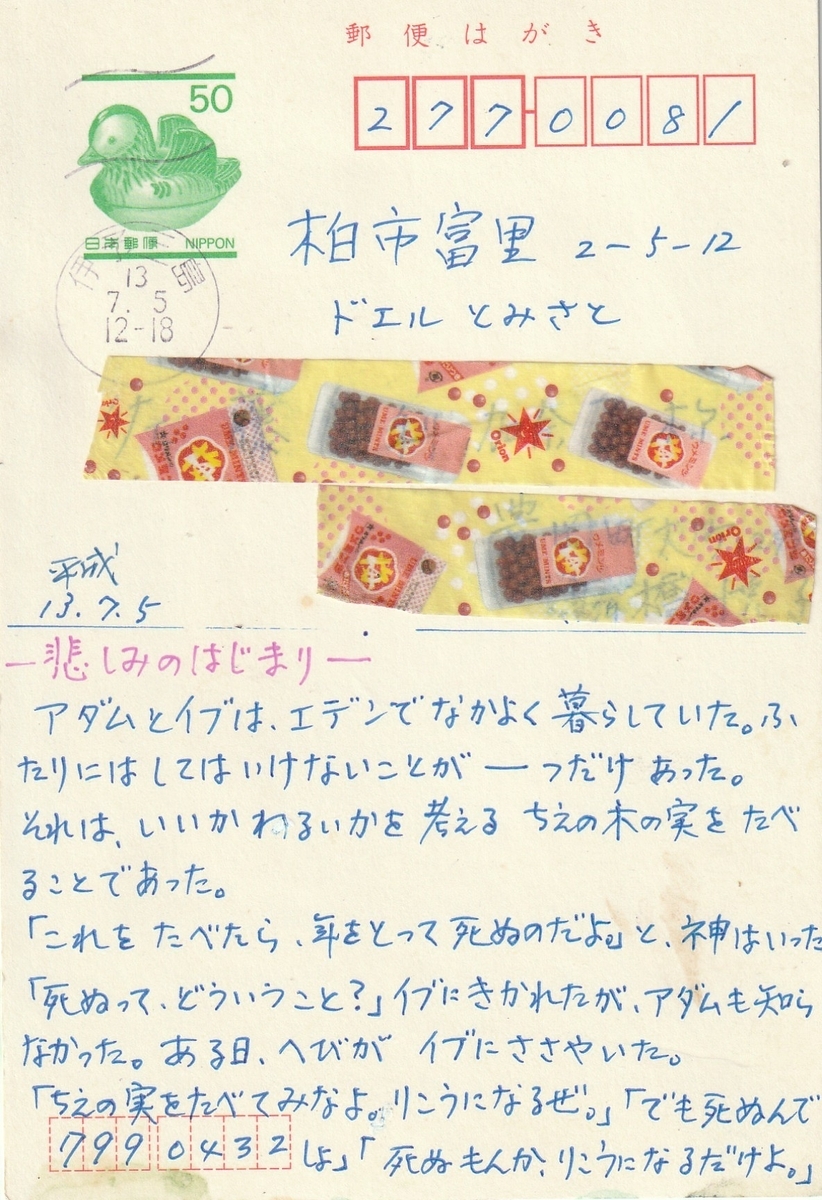 郵便はがき
50
日本郵便 NIPPON
2770081
柏市富里 2-5-12
ドエル とみさと
13
7.5
12-18
Orion
UME MINTS
Orion
UME MINTS
平成
13.7.5
―悲しみのはじまり―
アダムとイブは、エデンでなかよく暮らしていた。ふ
たりにはしてはいけないことが一つだけあった。
それは、いいかわるいかを考えるちえの木の実をたべ
ることであった。
「これをたべたら、年をとって死ぬのだよ。」と、神はいった
「死ぬって、どういうこと?」イブにきかれたが、アダムも知ら
なかった。ある日、へびが イブにささやいた。
「ちえの実をたべてみなよ。りこうになるぜ。」「でも死ぬんで
しょ」「死ぬもんか、りこうになるだけよ。」
7990432